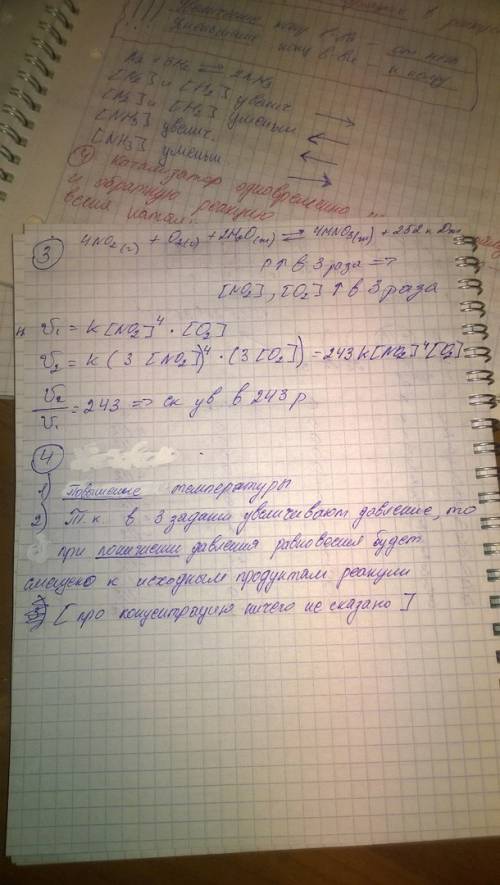 Увеличение конц в-ва – от него
Уменьшение конц в-ва – к нему
N2 + 3H2 ⇄ 2NH3
[N2] и [H2] увелич. →
[N2] и [H2] уменьш ←
[NH3] увелич. ←
[NH3] уменьш →
④ катализатор одновременно
и обратную реакцию
③ 4NO2(г) + O2(г) + 2H2O(ж) ⇄ 4HNO3(ж) + 252 кДж
P↑ в 3 раза =>
[NO2], [O2] ↑ в 3 раза
V1 = K [NO2]^4 · [O2]
V2 = K (3 [NO2])^4 · (3 [O2]) = 243 K [NO2]^4 [O2]
V2/V1 = 243 => ск ув в 243 р
④
1) Повышение температуры
2) Т.к в 3 задании увеличивают давление, то
при понижении давления равновесия будет
смещено к исходным продуктам реакции
[про концентрацию ничего не сказано]